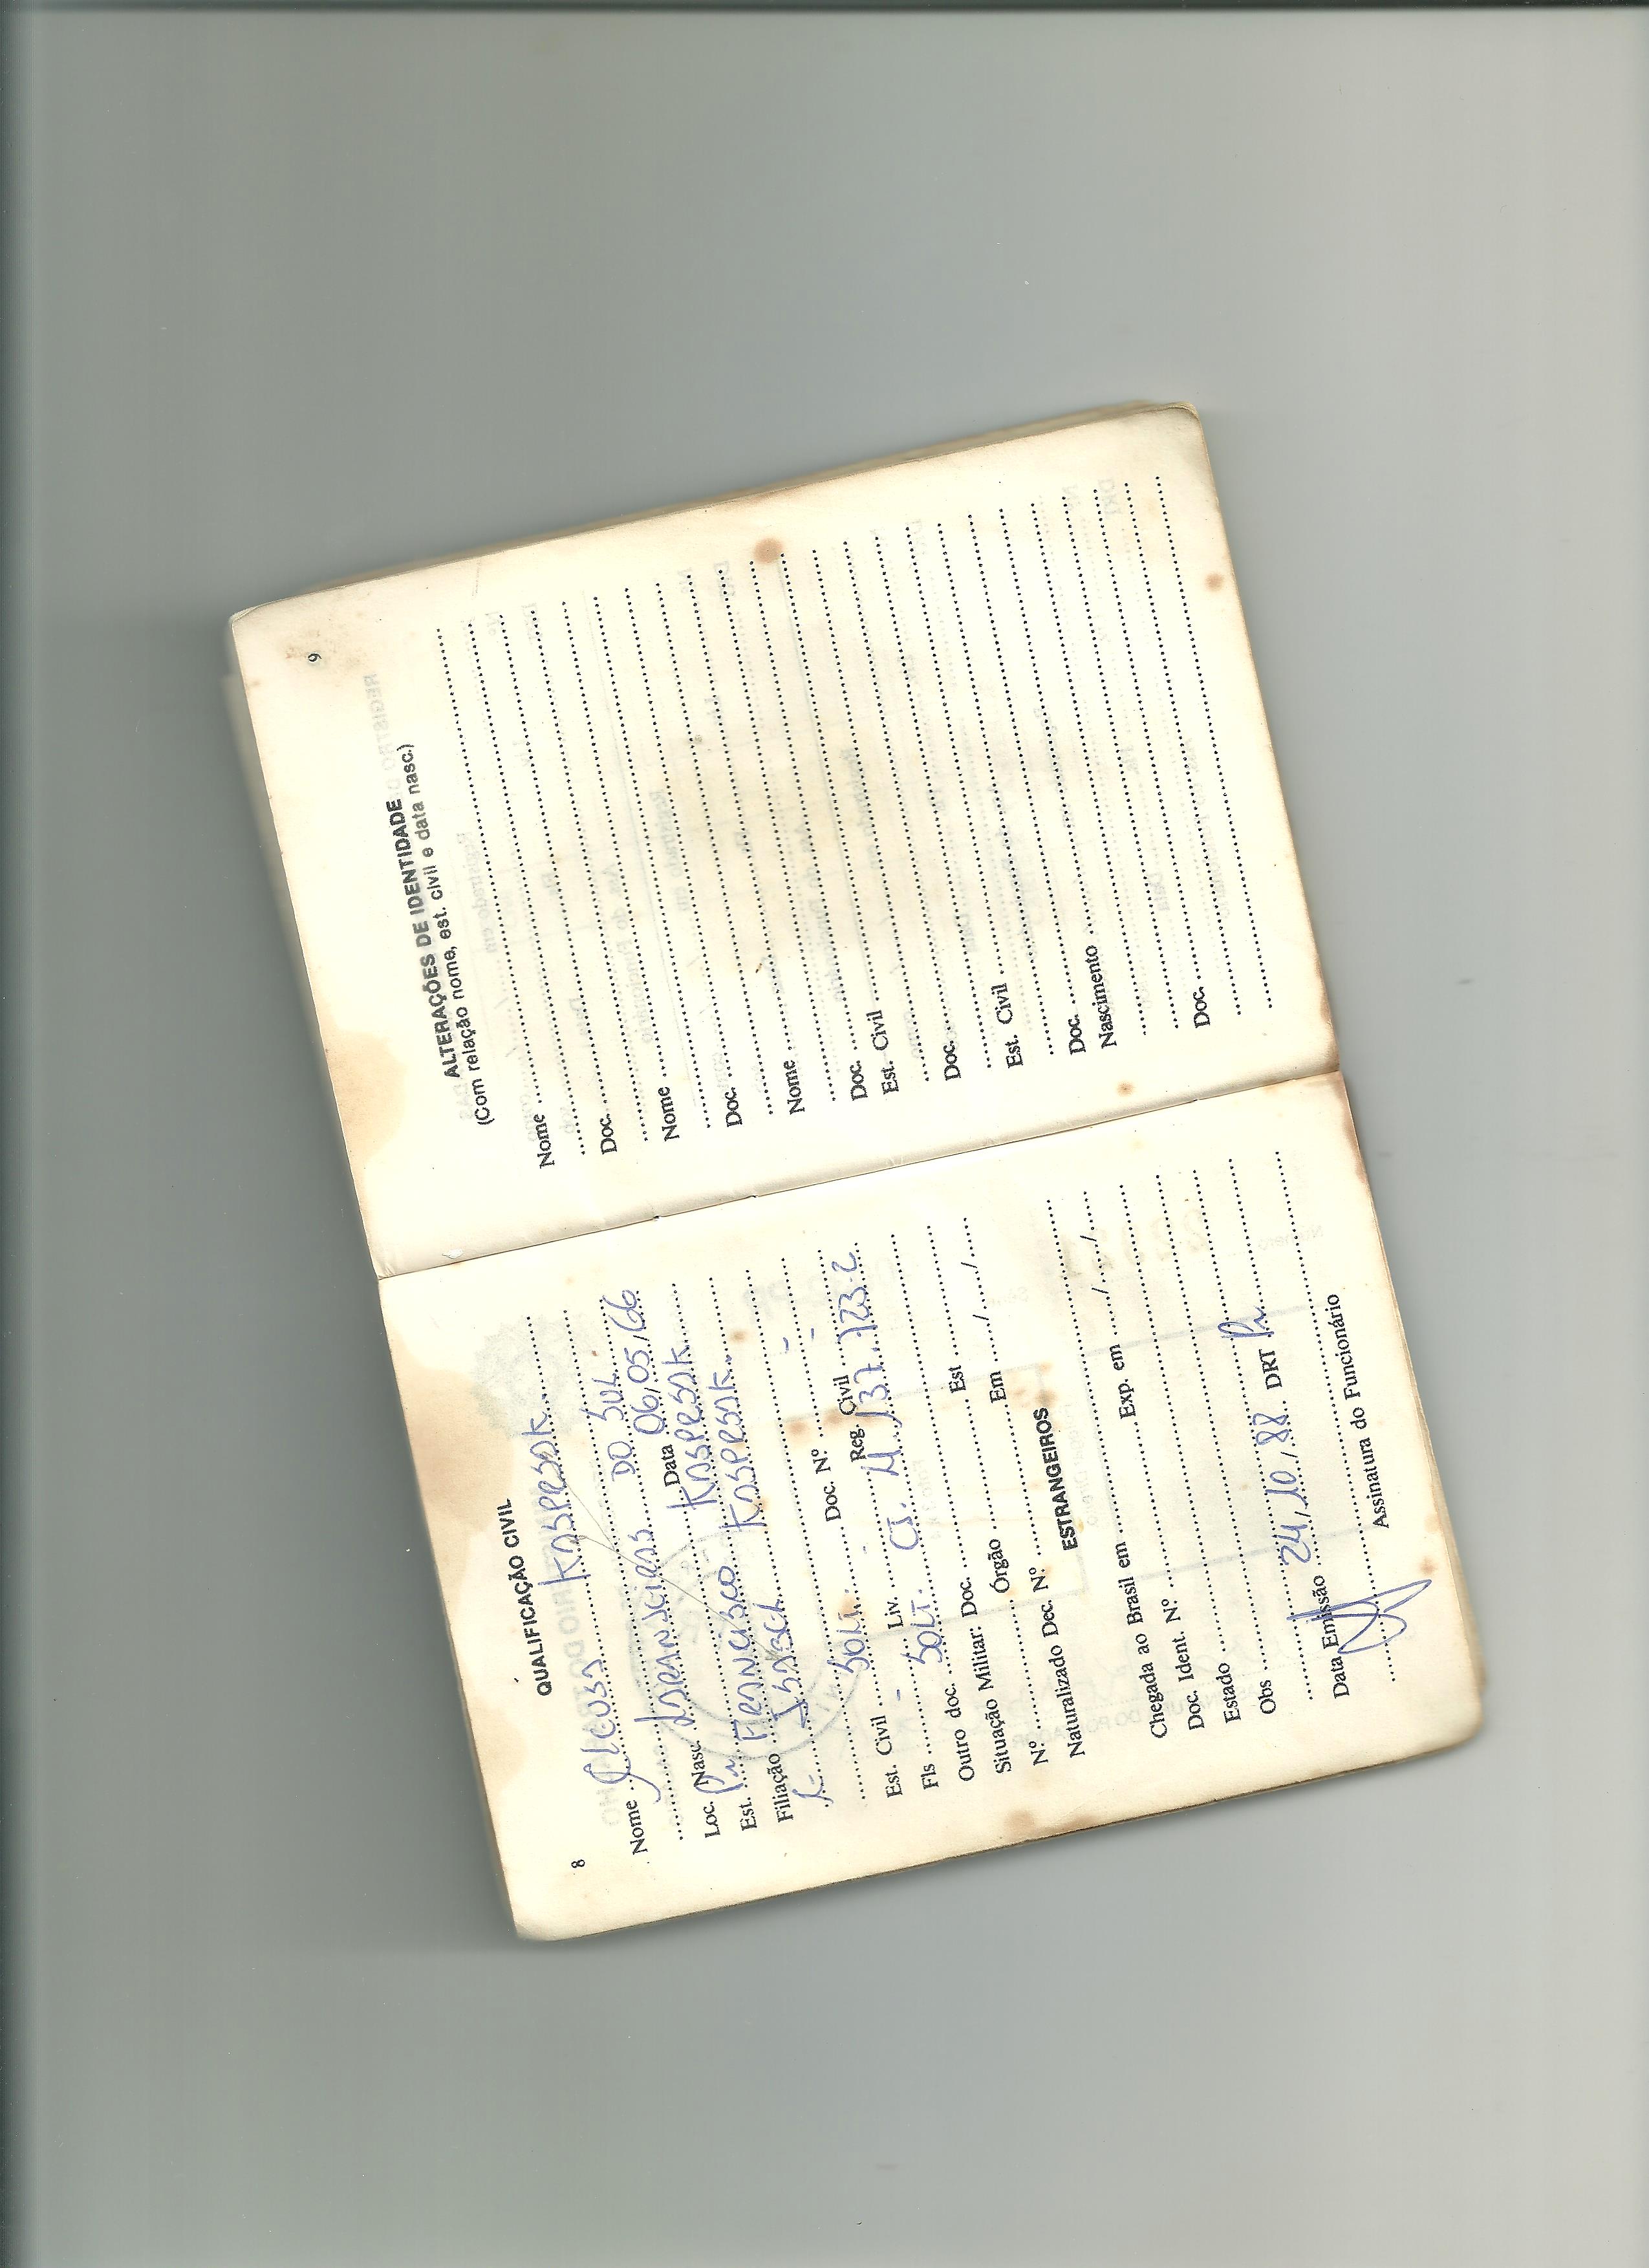 8
QUALIFICAÇÃO CIVIL
Nome KASPRESAK
Loc. Nasc. LARANJEIRAS DO SUL
Est. Pr Data 06/05/66
Filiação FRANCISCO KASPRESAK
KASPRESAK
Doc. Nº
Est. Civil SOLT. Reg. Civil
Fls Liv.
Outro doc. SOLT. CI. 4.137.723-2
Situação Militar: Doc. Est
Nº Órgão Em / /
Naturalizado Dec. Nº
ESTRANGEIROS
Chegada ao Brasil em Exp. em / /
Doc. Ident. Nº
Estado
Obs
Data Emissão 24/10/88 DRT Pr
Assinatura do Funcionário
9
ALTERAÇÕES DE IDENTIDADE
(Com relação nome, est. civil e data nasc.)
Nome
Doc.
Nome
Doc.
Nome
Doc.
Est. Civil
Doc.
Est. Civil
Doc.
Nascimento
Doc.